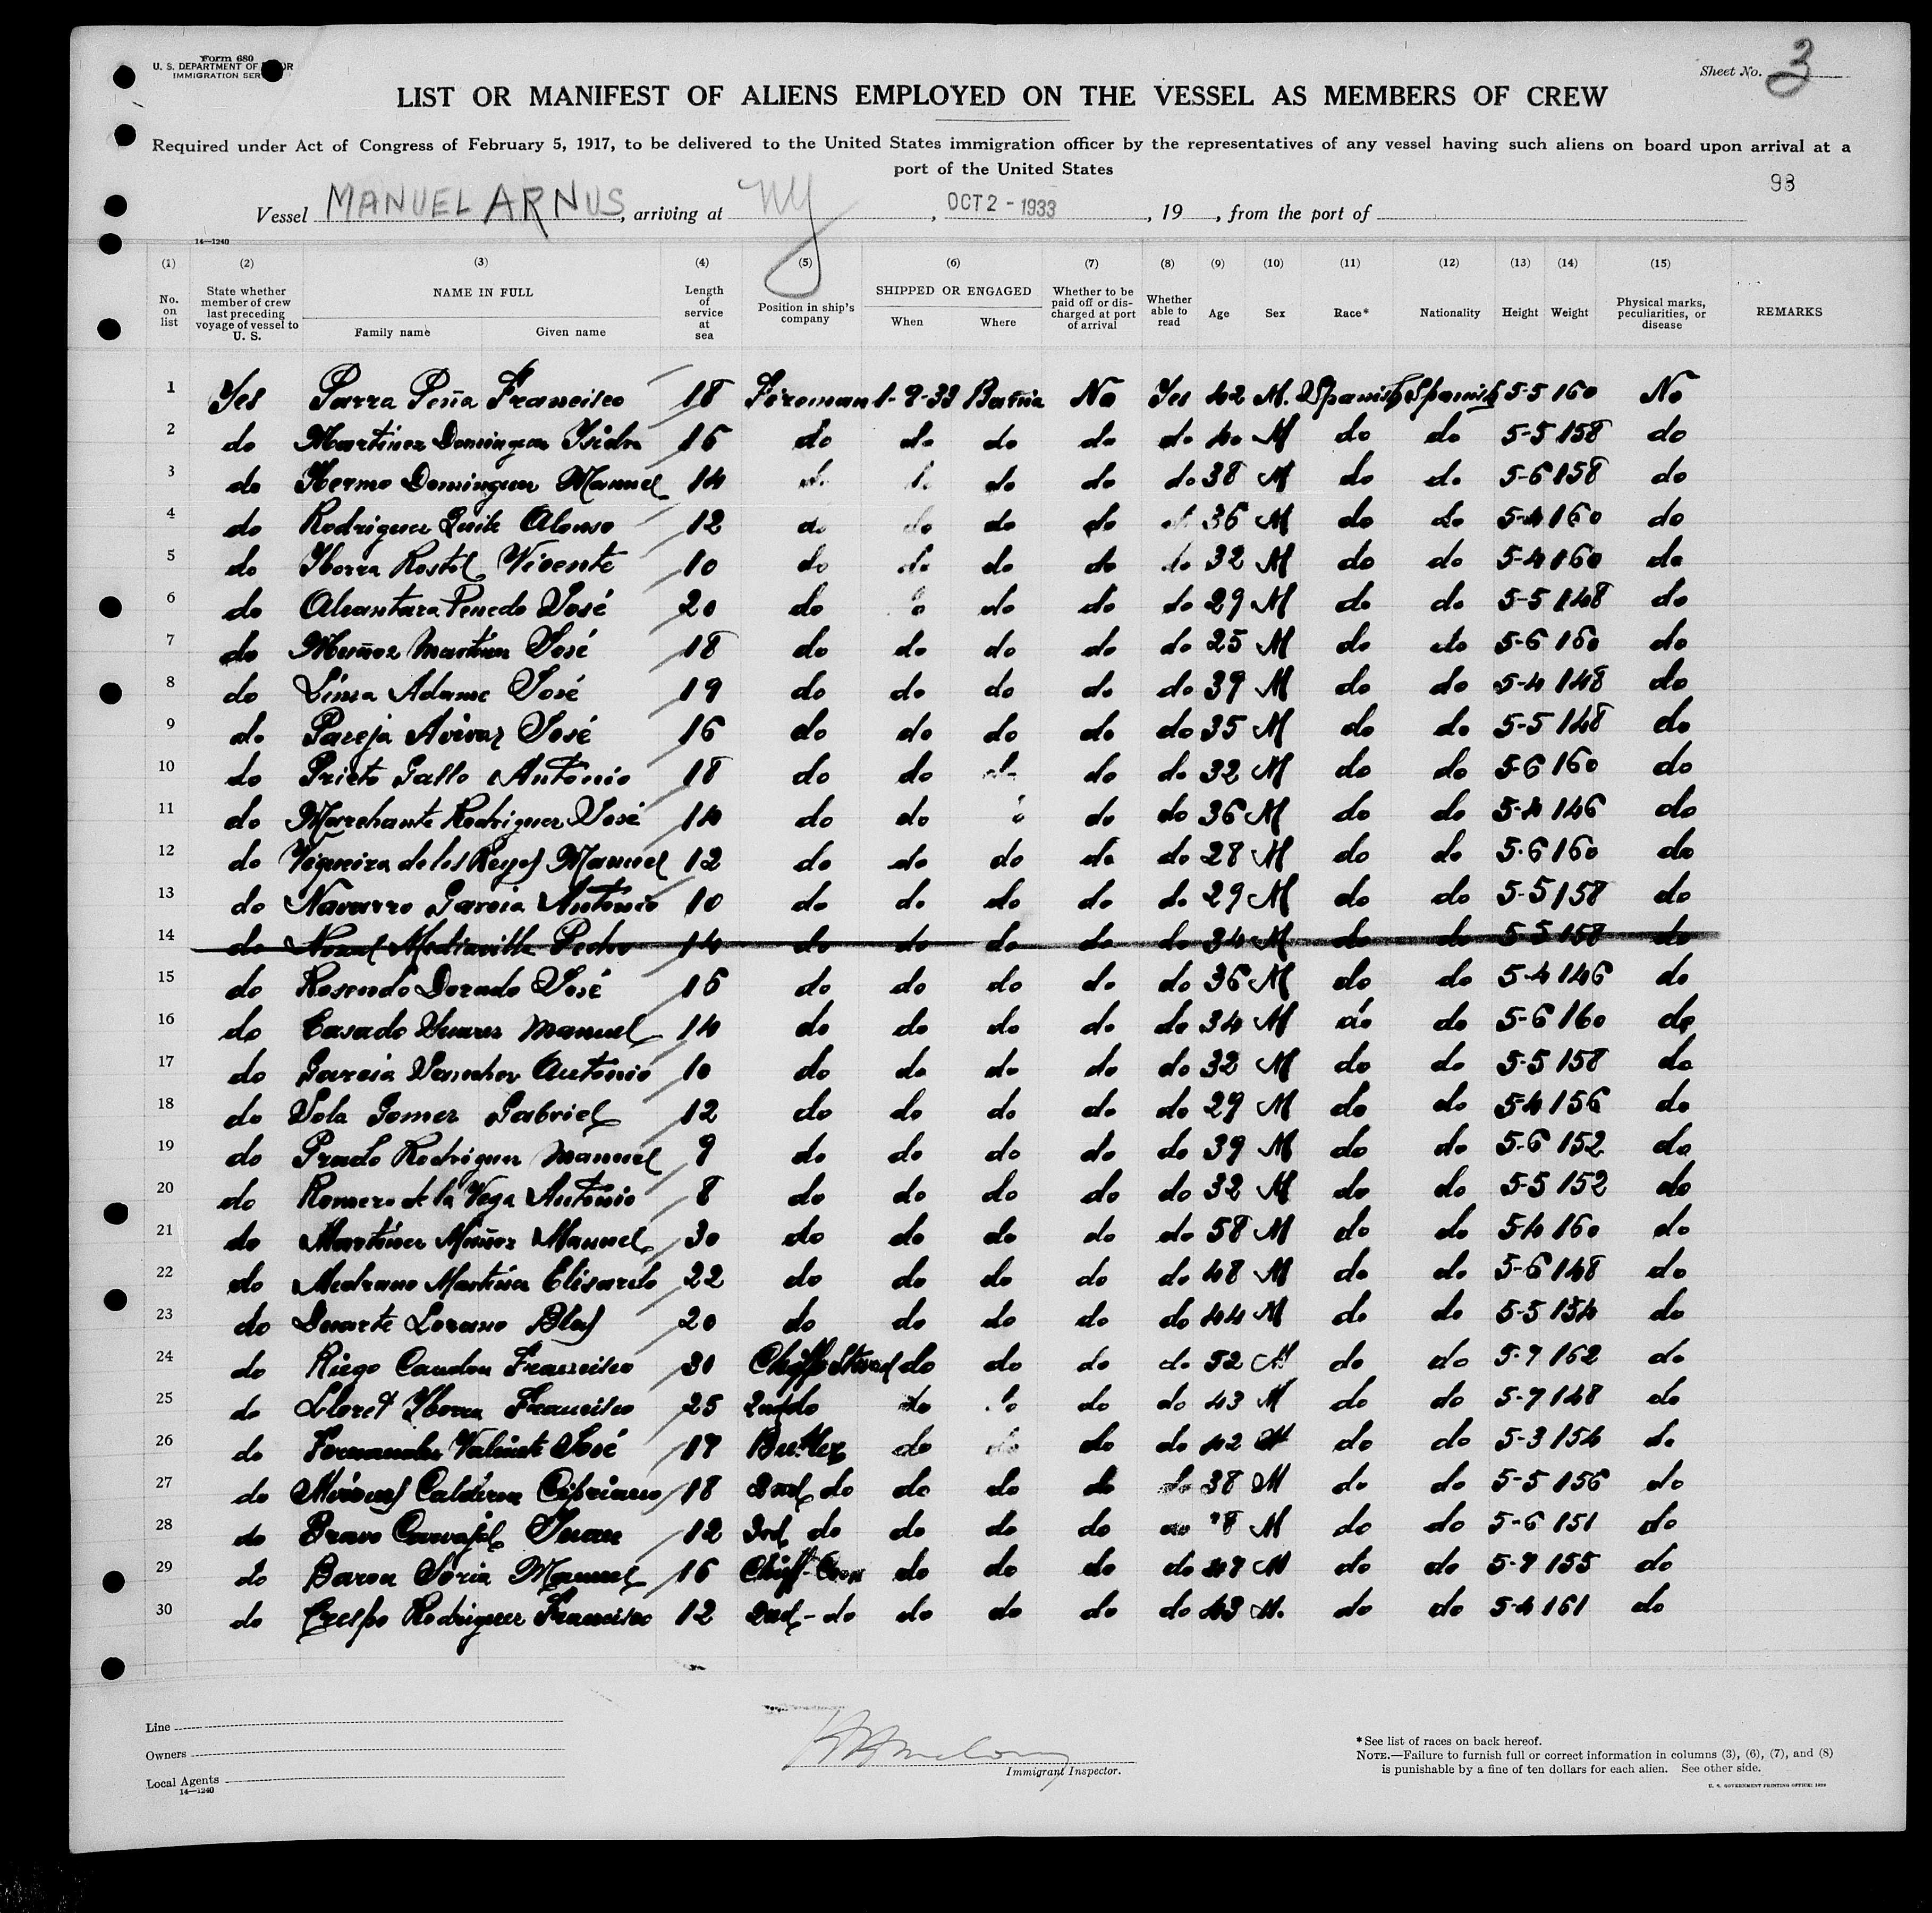 Form 680
U. S. DEPARTMENT OF LABOR
IMMIGRATION SER
Sheet No. 3
LIST OR MANIFEST OF ALIENS EMPLOYED ON THE VESSEL AS MEMBERS OF CREW
Required under Act of Congress of February 5, 1917, to be delivered to the United States immigration officer by the representatives of any vessel having such aliens on board upon arrival at a
port of the United States
98
Vessel MANUEL ARNUS, arriving at NY, OCT 2 - 1933, 19 , from the port of
14—1240
(1) (2) (3) (4) (5) (6) (7) (8) (9) (10) (11) (12) (13) (14) (15)
No. on list State whether member of crew last preceding voyage of vessel to U. S. NAME IN FULL Family name Given name Length of service at sea Position in ship's company SHIPPED OR ENGAGED When Where Whether to be paid off or discharged at port of arrival Whether able to read Age Sex Race* Nationality Height Weight Physical marks, peculiarities, or disease REMARKS
1 Yes Parra Peña Francisco 18 Fireman 1-9-33 Barña No Yes 42 M. Spanish Spanish 5-5 160 No
2 do Martinez Dominguez Isidro 16 do do do do do 40 M do do 5-5 158 do
3 do Hermo Dominguez Manuel 14 do do do do do 38 M do do 5-6 158 do
4 do Rodriguez Alonso 12 do do do do do 36 M do do 5-4 160 do
5 do Yborra Rostol Vicente 10 do do do do do 32 M do do 5-4 160 do
6 do Alcantara Penedo José 20 do do do do do 29 M do do 5-5 148 do
7 do Muñoz Martin José 18 do do do do do 25 M do do 5-6 160 do
8 do Adame José 19 do do do do do 39 M do do 5-4 148 do
9 do Pareja José 16 do do do do do 35 M do do 5-5 148 do
10 do Prieto Gallo Antonio 18 do do do do do 32 M do do 5-6 160 do
11 do Marchante Rodriguez José 14 do do do do do 36 M do do 5-4 146 do
12 do Vigueira de los Reyes Manuel 12 do do do do do 28 M do do 5-6 160 do
13 do Navarro Garcia Antonio 10 do do do do do 29 M do do 5-5 158 do
14 do Mediavilla Pedro 14 do do do do do 34 M do do 5-5 158 do
15 do Rosendo Dorado José 16 do do do do do 36 M do do 5-4 146 do
16 do Casado Suarez Manuel 14 do do do do do 34 M do do 5-6 160 do
17 do Garcia Sanchez Antonio 10 do do do do do 32 M do do 5-5 158 do
18 do Sola Gomez Gabriel 12 do do do do do 29 M do do 5-4 156 do
19 do Prado Rodriguez Manuel 9 do do do do do 39 M do do 5-6 152 do
20 do Romero de la Vega Antonio 8 do do do do do 32 M do do 5-5 152 do
21 do Martinez Muñoz Manuel 30 do do do do do 58 M do do 5-4 160 do
22 do Medrano Martinez Elisardo 22 do do do do do 48 M do do 5-6 148 do
23 do Duarte Lozano Blas 20 do do do do do 44 M do do 5-5 154 do
24 do Riego Candon Francisco 30 Chieff Stward do do do do 52 M do do 5-7 162 do
25 do Lloret Yborra Francisco 25 2nd do do do do do 43 M do do 5-7 148 do
26 do Fernandez Valiente José 17 Buttler do do do do 42 M do do 5-3 154 do
27 do Calderon Cipriano 18 2nd do do do do do 38 M do do 5-5 156 do
28 do Bravo Carvajal Juan 12 3rd do do do do do M do do 5-6 151 do
29 do Baron Soria Manuel 16 Chieff-Cook do do do do 47 M do do 5-7 155 do
30 do Crespo Rodriguez Francisco 12 2nd-do do do do do 43 M. do do 5-4 161 do
Line
Owners
Local Agents
14—1240
Immigrant Inspector.
*See list of races on back hereof.
NOTE.—Failure to furnish full or correct information in columns (3), (6), (7), and (8)
is punishable by a fine of ten dollars for each alien. See other side.